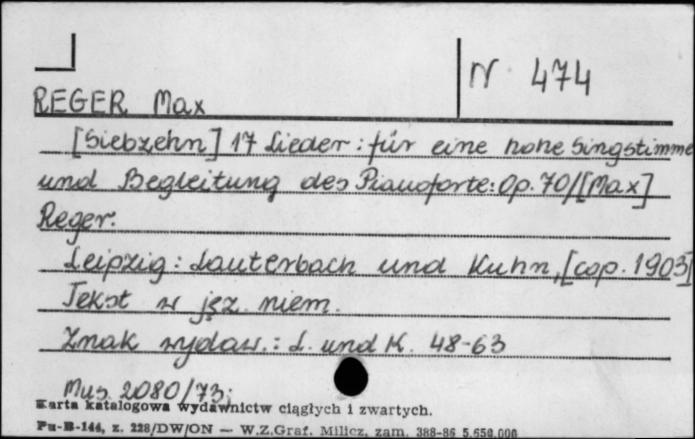 N 474
REGER Max
[Siebzehn] 17 Lieder : für eine hohe Singstimme
und Begleitung des Pianoforte : Op. 70 / [Max]
Reger.
Leipzig : Lauterbach und Kuhn, [cop. 1903]
Tekst w jęz. niem.
Znak wydaw. : L. und K. 48-63
Mus. 2080/73;
Karta katalogowa wydawnictw ciągłych i zwartych.
Pu-B-144, z. 228/DW/ON — W.Z.Graf. Milicz, zam. 388-86 5.650.000